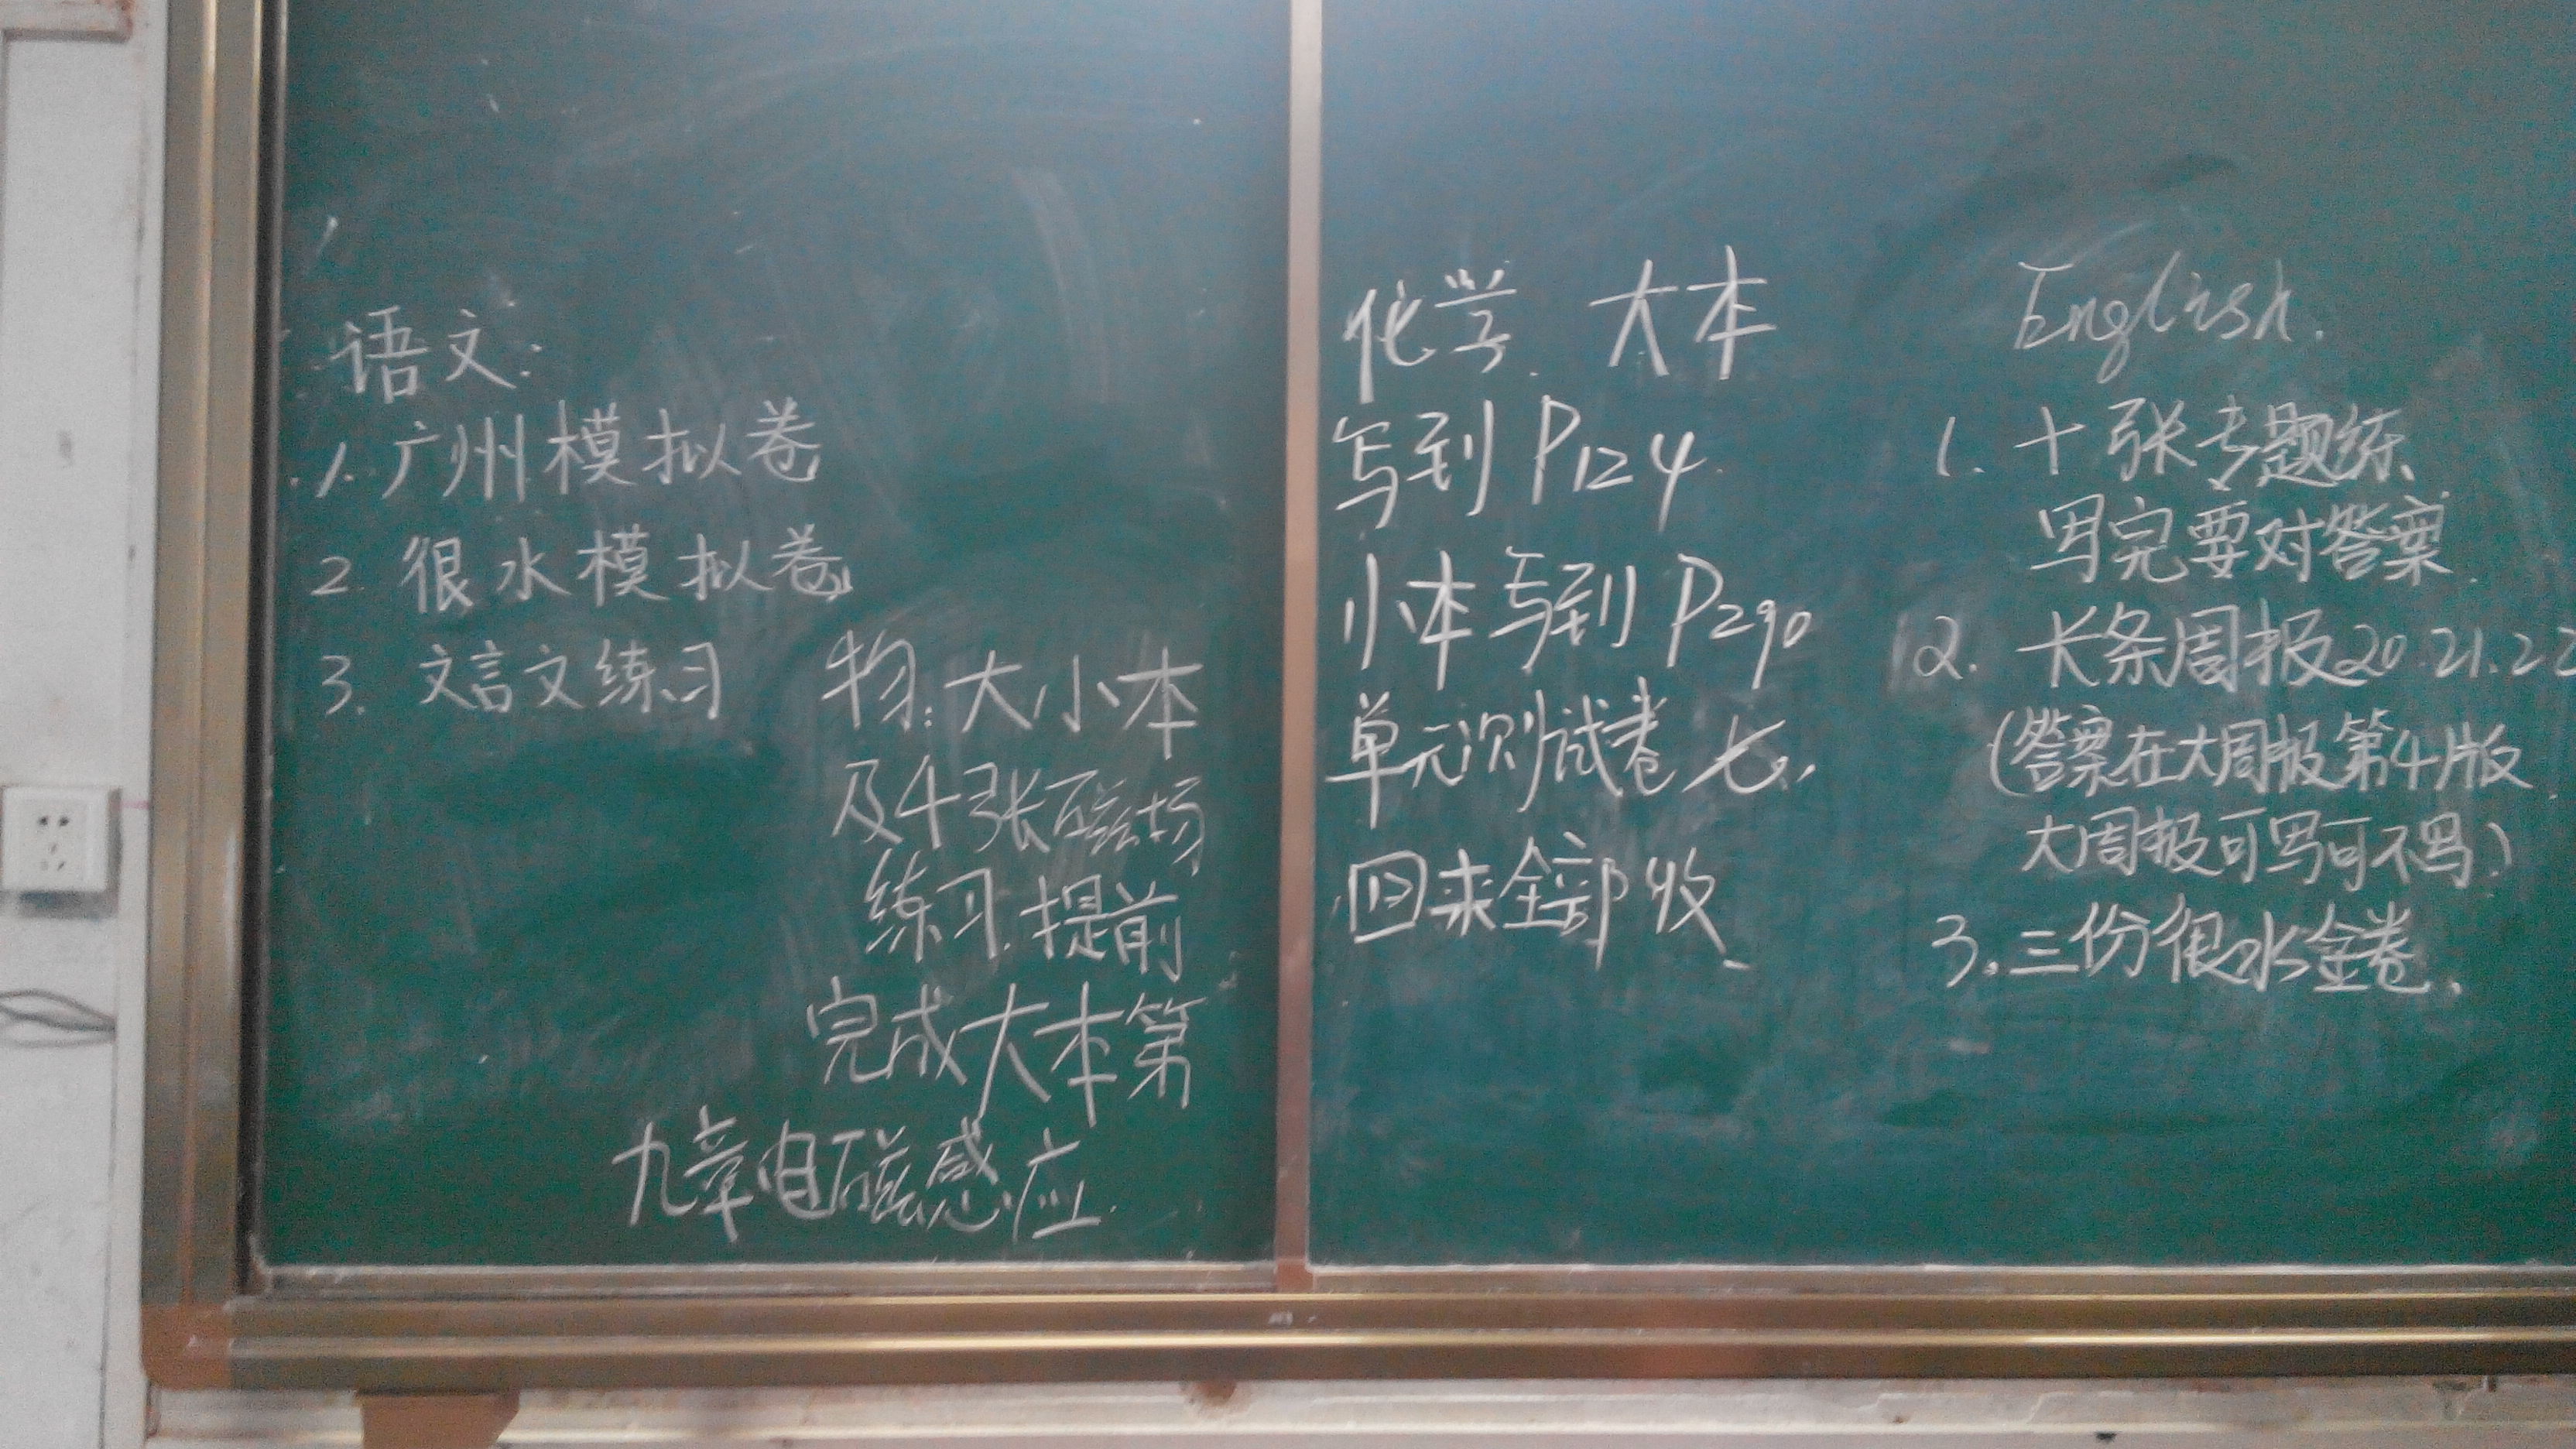 语文:
1. 广州模拟卷
2. 很水模拟卷
3. 文言文练习
物:大小本
及4张磁场
练习.提前
完成大本第
九章电磁感应.
化学. 大本
写到 P124.
小本写到 P290
单元测试卷七.
回来全部收
English.
1. 十张专题练
写完要对答案.
2. 长条周报20.21.22
(答案在大周报第4版
大周报可写可不写)
3.三份很水金卷.